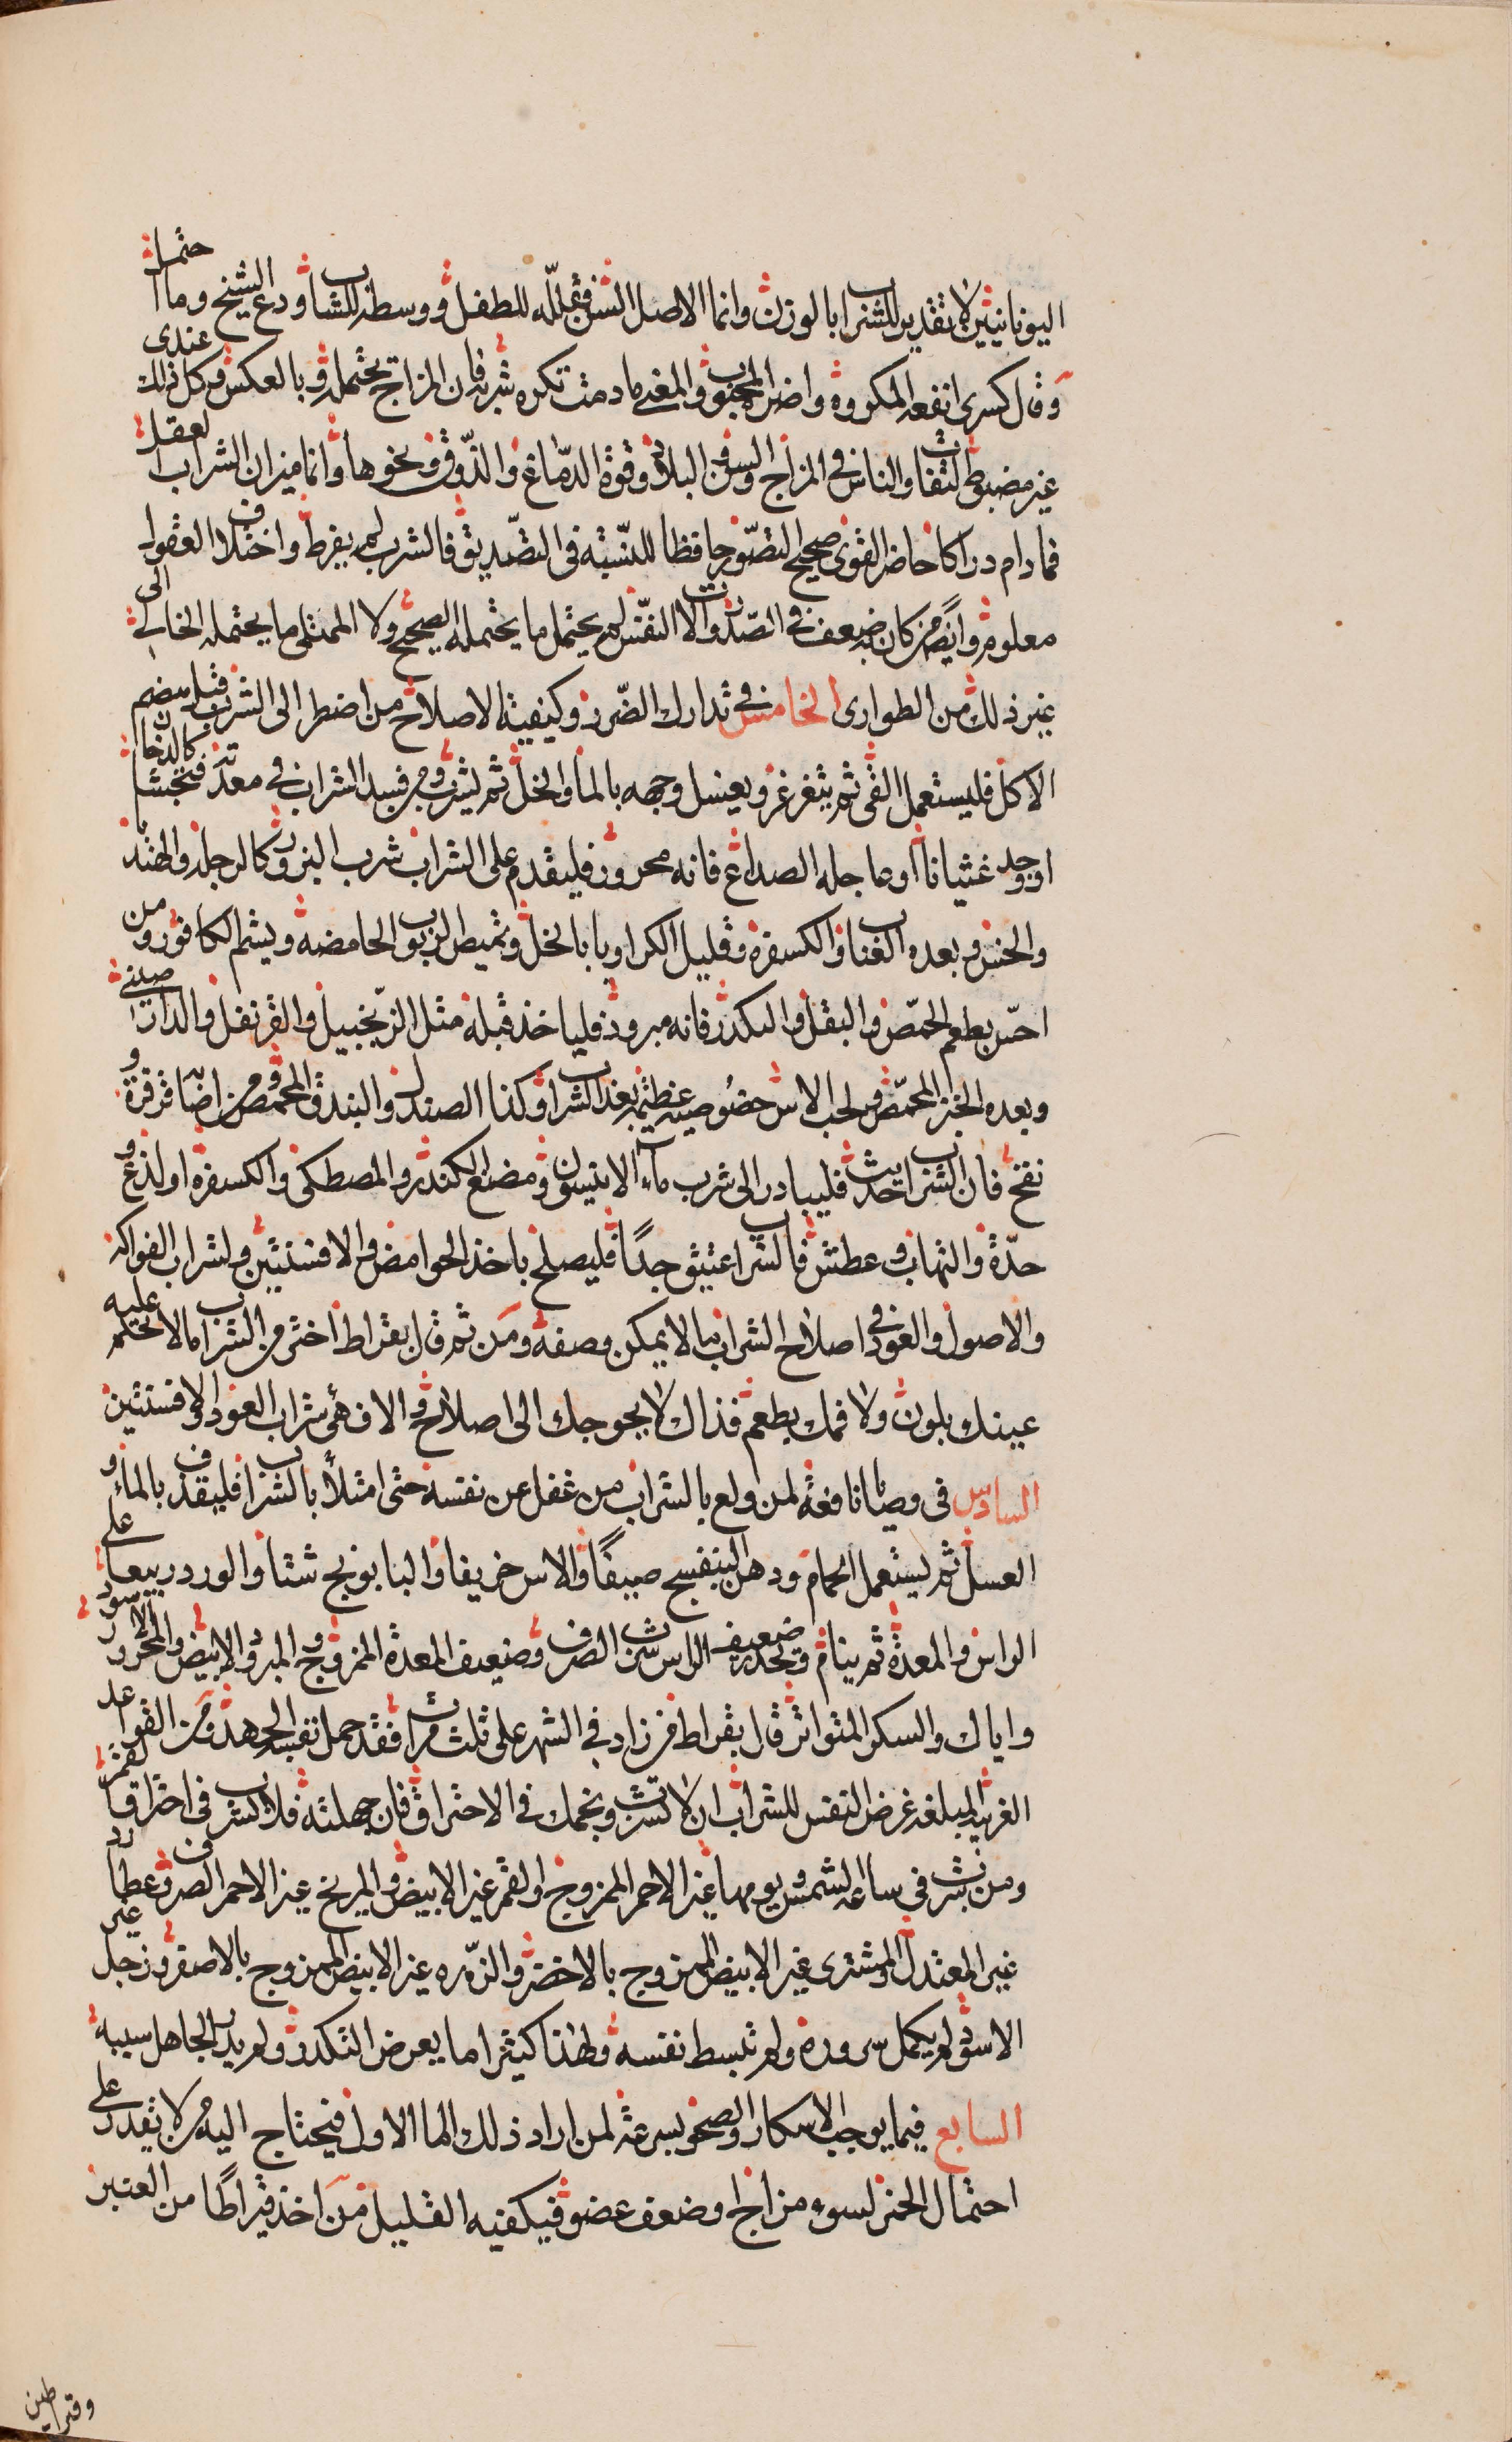 اليونانيين لا تقدير للشراب بالوزن وانما الاصل السن فقلله للطفل ووسطه للشاب ودع الشيخ وما احتمل
وقال كسرى انفعه المكروه واضره المحبوب والمغنى ما دمت تكره شربه فان المزاج يحتمله وبالعكس وكل ذلك عندى
غير مضبوط لتفاوت الناس فى المزاج والسن والبلاد وقوة الدماغ والذوق ونحوها وانما ميزان الشراب العقل
فما دام دراكا حاضر القوى صحيح التصور حافظا للنسبة فى التصديق فالشرب لم يفرط واختلاف العقول
معلوم وايضا من كان به ضعف فى الصدر والات النفس لم يحتمل ما يحتمله الصحيح ولا الممتلى ما يحتمله الخالى الى
غير ذلك من الطوارى الخامس فى تدارك الضرر وكيفية الاصلاح من اضطر الى الشرب قبل هضم
الاكل فليستعمل القى ثم يتغرغر ويغسل وجهه بالماء والخل ثم يشرب ومن فسد الشراب فى معدته فتجشا كالدخان
او وجد غثيانا او عاجله الصداع فانه محرور فليقدم على الشراب شرب البزور كالرجلة والهندبا
والخس وبعده العناب والكسفرة وقليل الكراويا بالخل وتمصيص الربوب الحامضه ويشم الكافور ومن
احس بطعم الحمض والبقل والتكدر فانه مبرود فلياخذ قبله مثل الزنجبيل والقرنفل والدارصينى
وبعده الخبز المحمص ولحب الاس خصوصية عظيمة بعد الشراب وكذا الصندل والبندق المحمص ومن اصابته قرقرة و
نفخ فان الشراب حديث فليبادر الى شرب ماء الانيسون ومضغ الكندر والمصطكى والكسفرة او لذع و
حدة والتهاب وعطش فالشراب عتيق جدًا فليصلح باخذ الحوامض والافسنتين ولشراب الفواكه
والاصول والعود فى اصلاح الشراب ما لا يمكن وصفه ومن ثم قال بقراط اختر من الشراب ما لا تحكم عليه
عينك بلون ولا فمك بطعم فذاك لا يحوجك الى اصلاح والا فهئ شراب العود والافسنتين
السادس فى وصايا نافعة لمن ولع بالشراب من غفل عن نفسه حتى امتلأ بالشراب فليقذف بالماء و
العسل ثم ليستعمل الحمام ودهن البنفسج صيفًا والاس خريفا والبابونج شتا والورد ربيعا على
الراس والمعدة ثم ينام وليحذر ضعيف الراس شرب الصرف وضعيف المعدة الممزوج والمبرود الابيض والمحرور الاسود
واياك والسكر المتواتر قال بقراط من زاد فى الشهر على ثلث مرات فقد حمل نفسه الجهد ومن القواعد
الغريبة المبلغة غرض النفس للشراب ان لا تشرب ونجمك فى الاحتراق فان جهلته فلا تشرب فى احتراق القمر
ومن شرب فى ساعة الشمس ويومها غير الاحمر الممزوج او القمر غير الابيض والمريخ غير الاحمر الصرف وعطارد
غير المعتدل والمشترى غير الابيض الممزوج بالاخضر والزهره غير الابيض الممزوج بالاصفر وزحل غير
الاسود لم يكمل سروره ولم تبسط نفسه ولهذا كثيرا ما يعرض التكدر ولم يدر الجاهل سببه
السابع فيما يوجب الاسكار والصحو بسرعة لمن اراد ذلك اما الاول فيحتاج اليه من لا يقدر على
احتمال الخمر لسوء مزاج او ضعف عضو فيكفيه القليل من اخذ قيراطًا من العنبر
وقيراطين